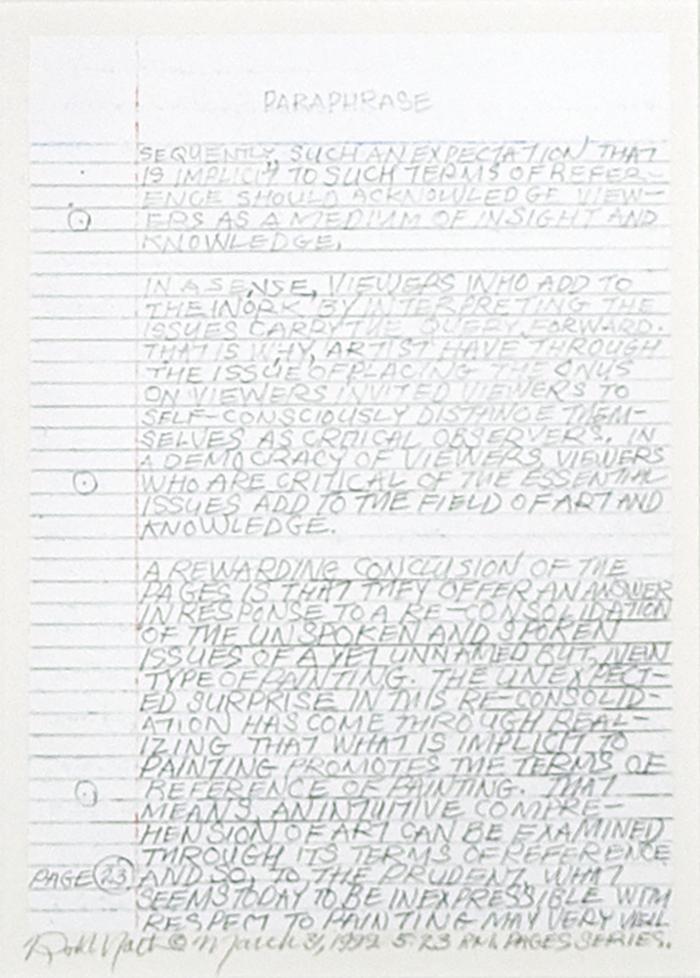 PARAPHRASE
SEQUENTLY, SUCH AN EXPECTATION THAT
IS IMPLICIT TO SUCH TERMS OF REFER-
ENCE SHOULD ACKNOWLEDGE VIEW-
ERS AS A MEDIUM OF INSIGHT AND
KNOWLEDGE.
IN A SENSE, VIEWERS WHO ADD TO
THE WORK BY INTERPRETING THE
ISSUES CARRY THE QUERY FORWARD.
THAT IS WHY, ARTIST HAVE THROUGH
THE ISSUE OF PLACING THE ONUS
ON VIEWERS INVITED VIEWERS TO
SELF-CONSCIOUSLY DISTANCE THEM-
SELVES AS CRITICAL OBSERVERS. IN
A DEMOCRACY OF VIEWERS VIEWERS
WHO ARE CRITICAL OF THE ESSENTIAL
ISSUES ADD TO THE FIELD OF ART AND
KNOWLEDGE.
A REWARDING CONCLUSION OF THE
PAGES IS THAT THEY OFFER AN ANSWER
IN RESPONSE TO A RE-CONSOLIDATION
OF THE UNSPOKEN AND SPOKEN
ISSUES OF A YET UNNAMED BUT NEW
TYPE OF PAINTING. THE UNEXPECT-
ED SURPRISE IN THIS RE-CONSOLID-
ATION HAS COME THROUGH REAL-
IZING THAT WHAT IS IMPLICIT TO
PAINTING PROMOTES THE TERMS OF
REFERENCE OF PAINTING. THAT
MEANS, AN INTUITIVE COMPRE-
HENSION OF ART CAN BE EXAMINED
THROUGH ITS TERMS OF REFERENCE
PAGE 23 AND SO, TO THE PRUDENT, WHAT
SEEMS TODAY TO BE INEXPRESSIBLE WITH
RESPECT TO PAINTING MAY VERY WELL
© March 31, 1992 5:23 PM. PAGES SERIES.